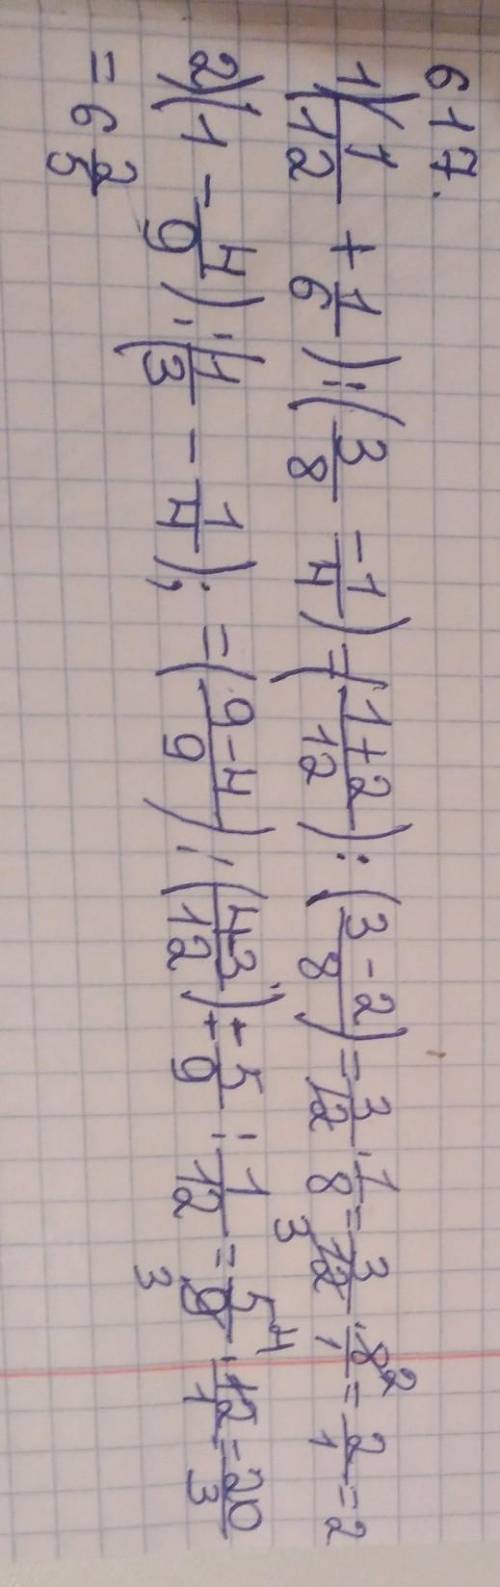 617.
1) (1/12 + 1/6) : (3/8 - 1/4) = (1+2/12) : (3-2/8) = 3/12 : 1/8 = 3/12 · 8/1 = 2/1 = 2
2) (1 - 4/9) : (1/3 - 1/4); = (9-4/9) : (4-3/12) = 5/9 : 1/12 = 5/9 · 12/1 = 20/3
= 6 2/5